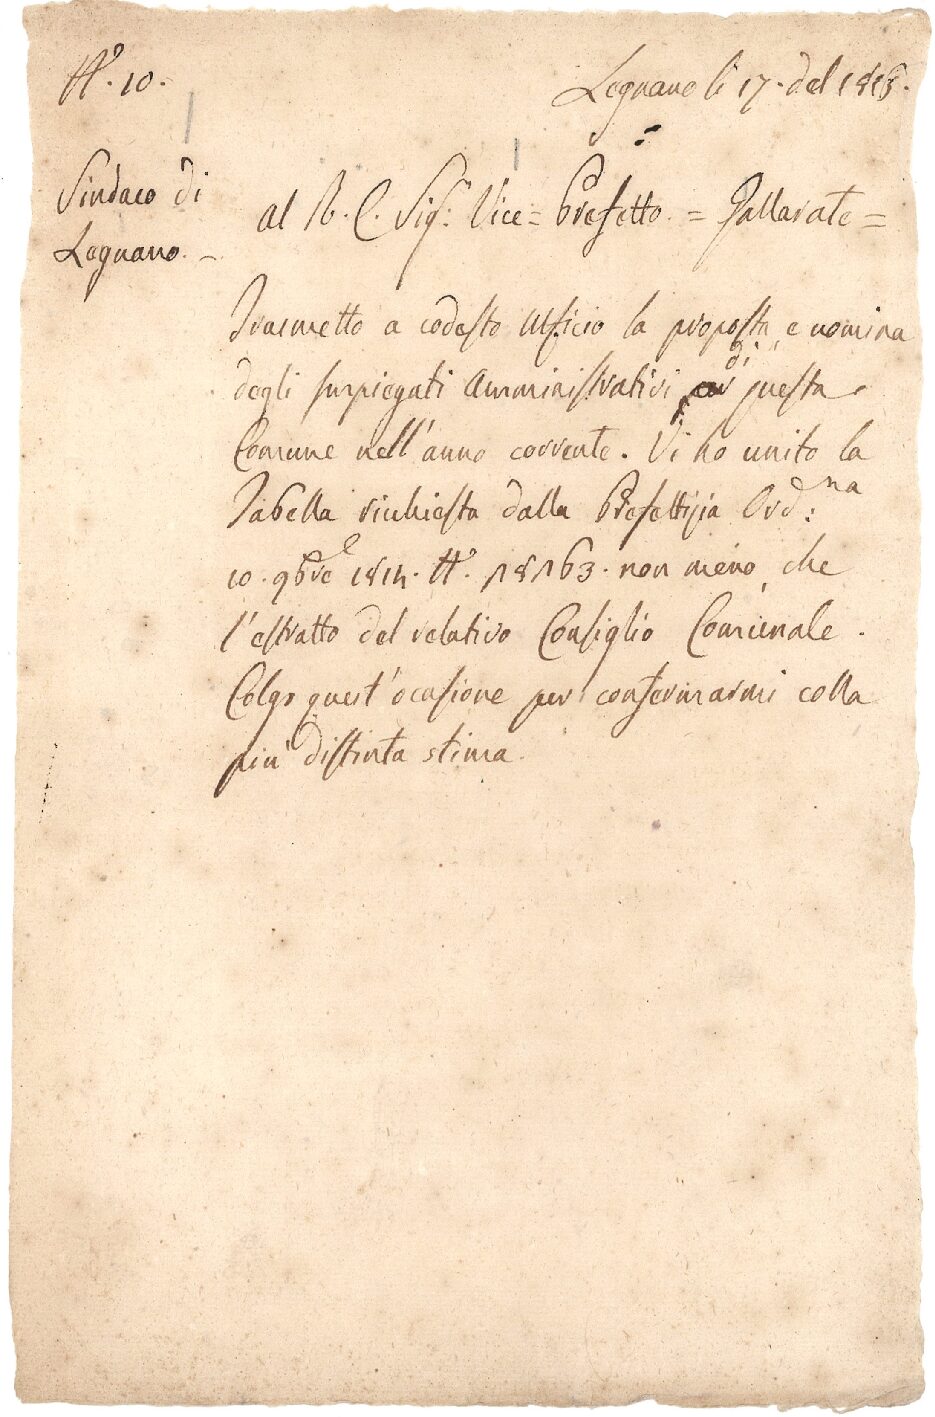 N.° 10.
Legnano li 17. del 1815.
Sindaco di
Legnano. –
al R. C. Sig.r: Vice= Prefetto. = Gallarate =
Trasmetto a codesto Ufficio la proposta, e nomina
degli Impiegati Amministrativi di questa
Comune nell'anno corrente. Vi ho unito la
Tabella richiesta dalla Prefettizia Ord:na
10. 9bre 1814. N.° 18163. non meno, che
l'estratto del relativo Consiglio Comunale.
Colgo quest'ocasione per confermarmi colla
più distinta stima.